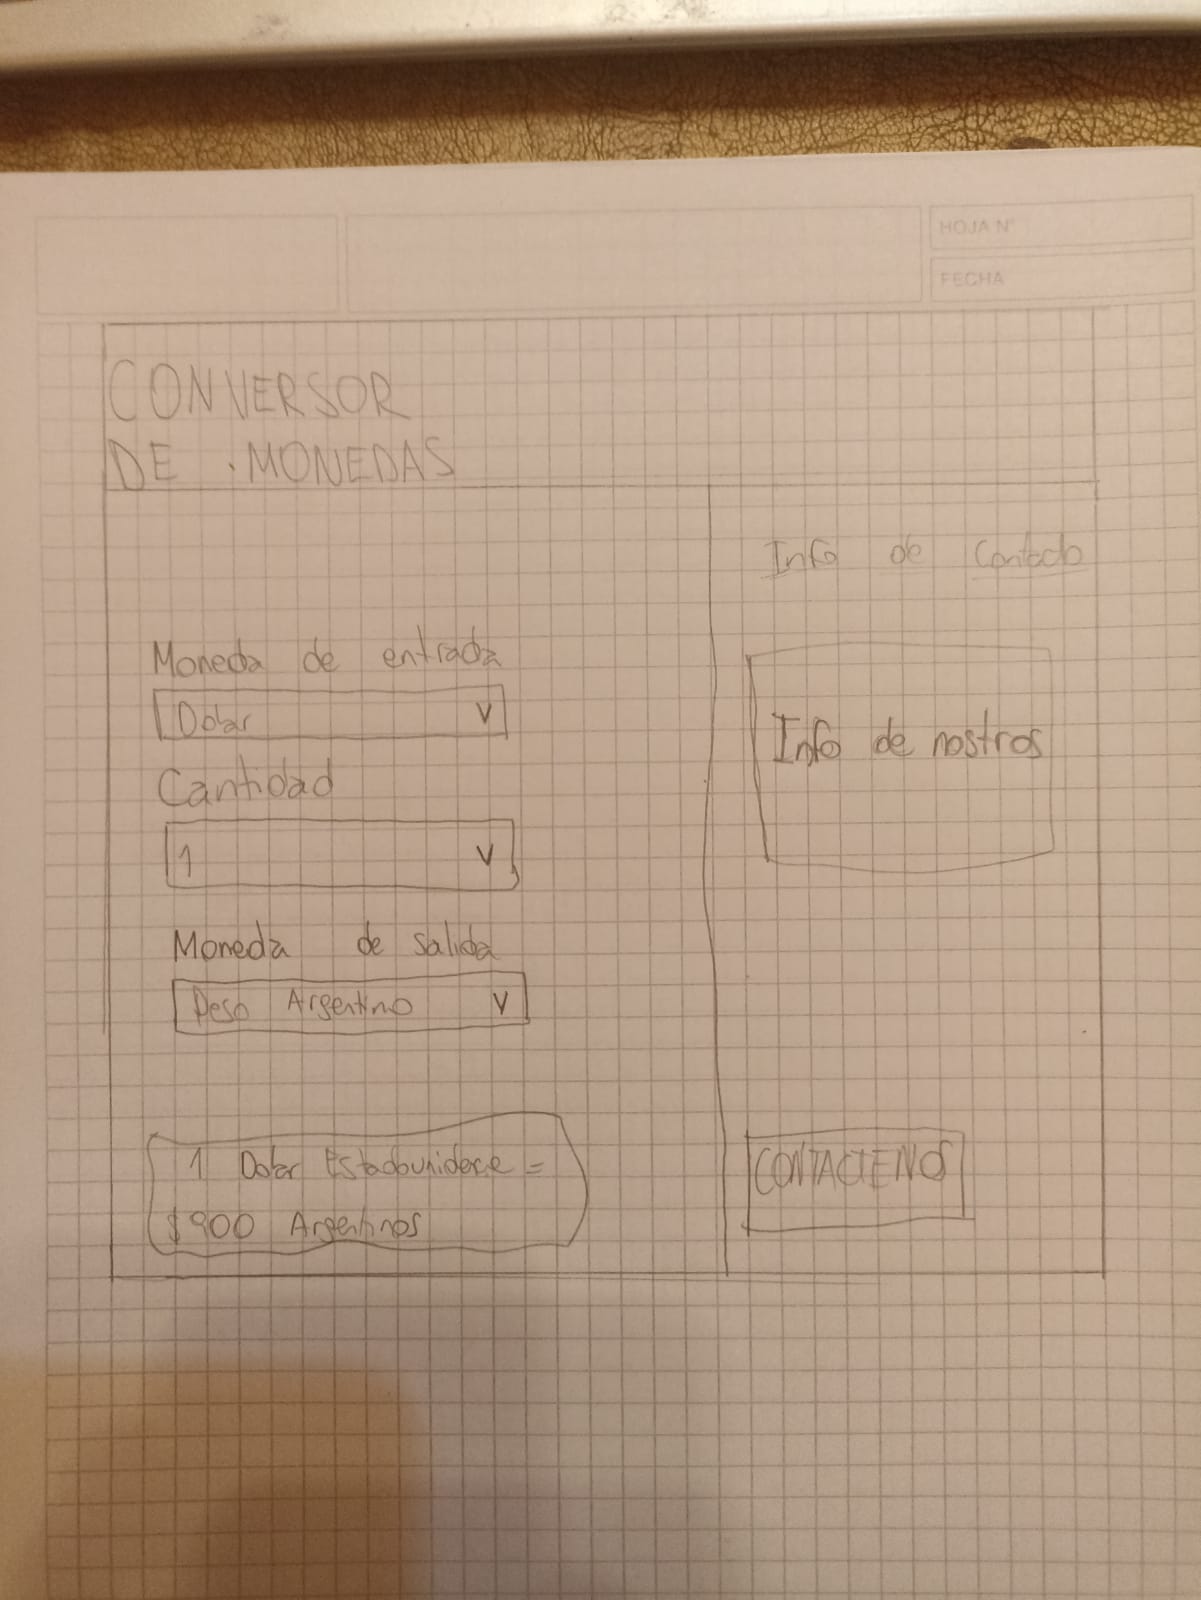 HOJA N°
FECHA
CONVERSOR
DE MONEDAS
Info de Contacto
Moneda de entrada
Dolar V
Cantidad
1 V
Moneda de salida
Peso Argentino V
1 Dolar Estadounidece =
$900 Argentinos
Info de nostros
CONTACTENOS